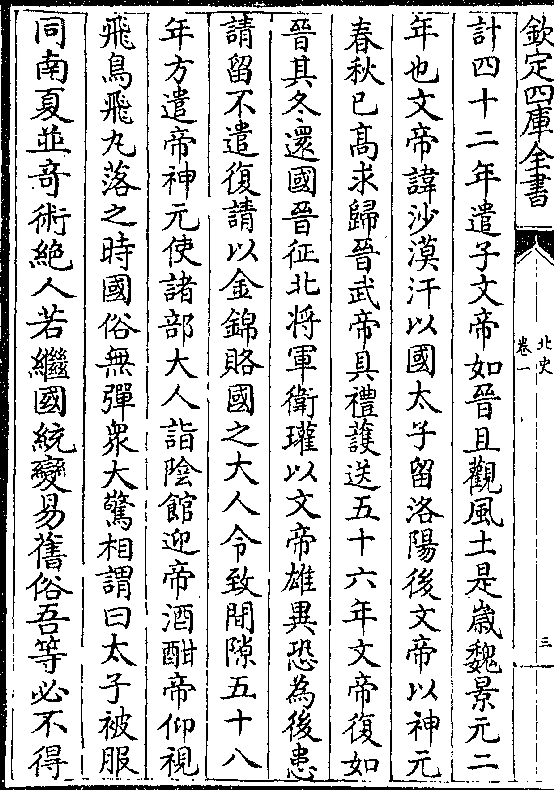 欽定四庫全書
北史
卷一
三
計四十二年遣子文帝如晉且觀風土是嵗魏景元二
年也文帝諱沙漠汗以國太子留洛陽後文帝以神元
春秋已髙求歸晉武帝具禮護送五十六年文帝復如
晉其冬還國晉征北将軍衛瓘以文帝雄異恐為後患
請留不遣復請以金錦賂國之大人令致間隙五十八
年方遣帝神元使諸部大人詣陰館迎帝酒酣帝仰視
飛鳥飛丸落之時國俗無彈衆大驚相謂曰太子被服
同南夏並奇術絶人若繼國統變易舊俗吾等必不得